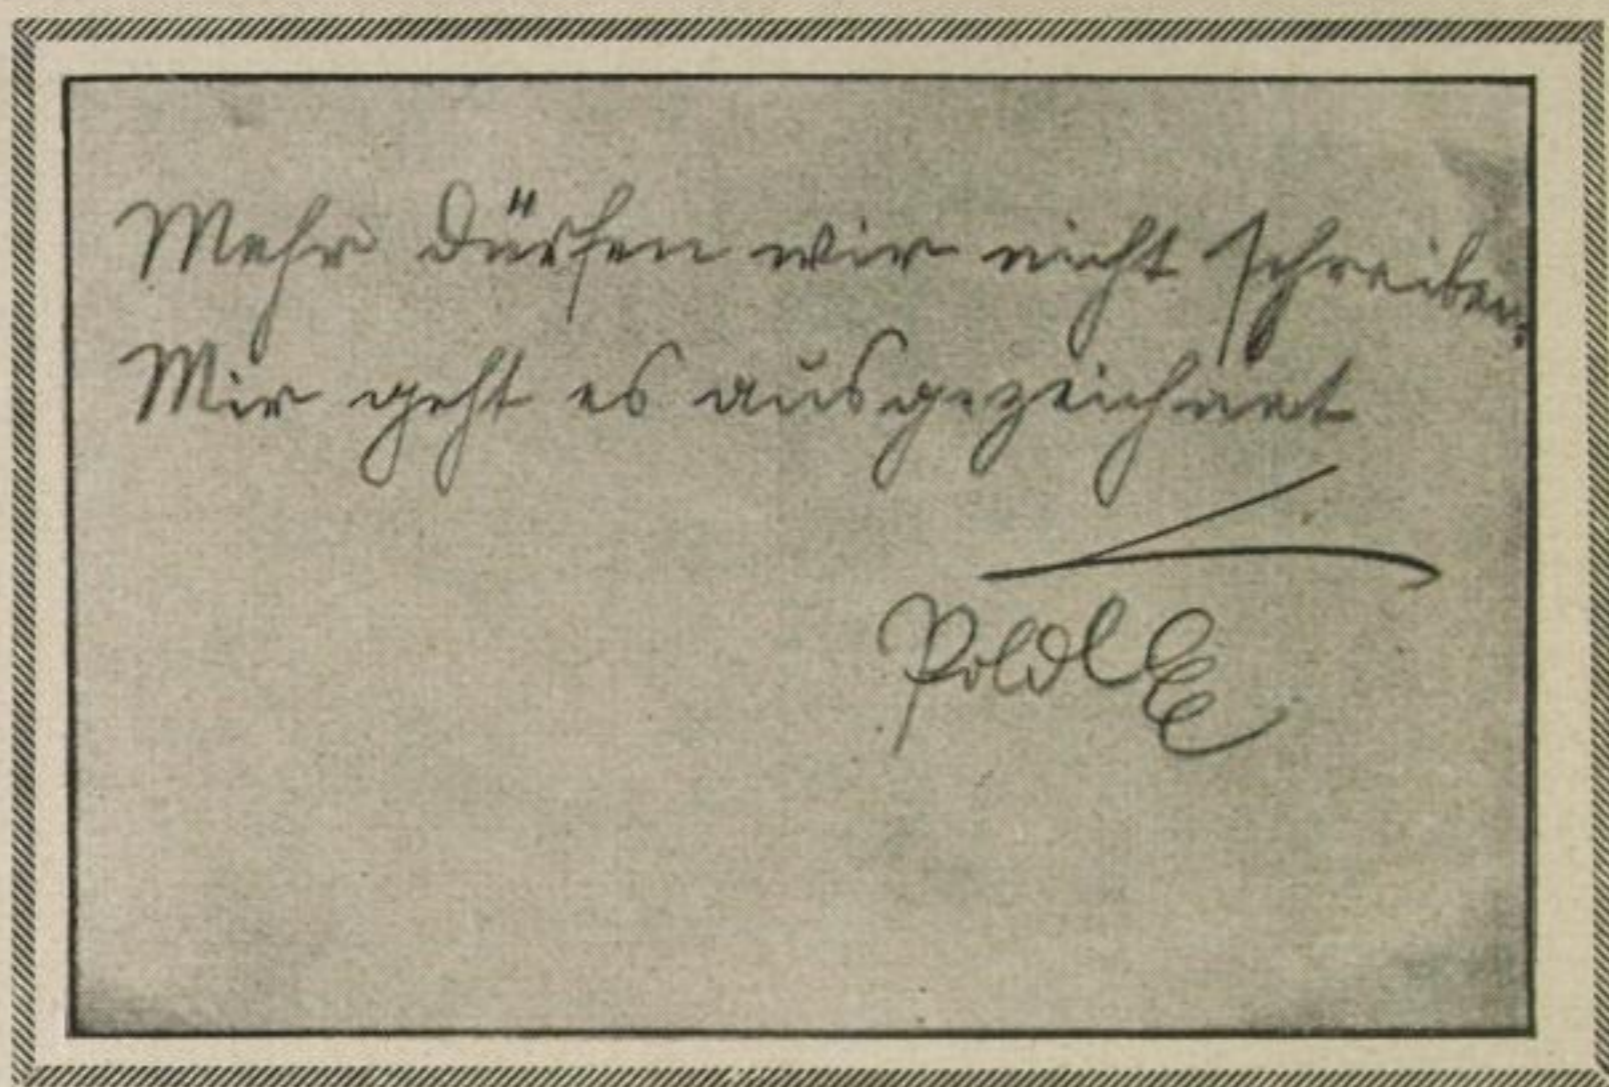 Mehr dürfen wir nicht schreiben.
Mir geht es ausgezeichnet
Poldl